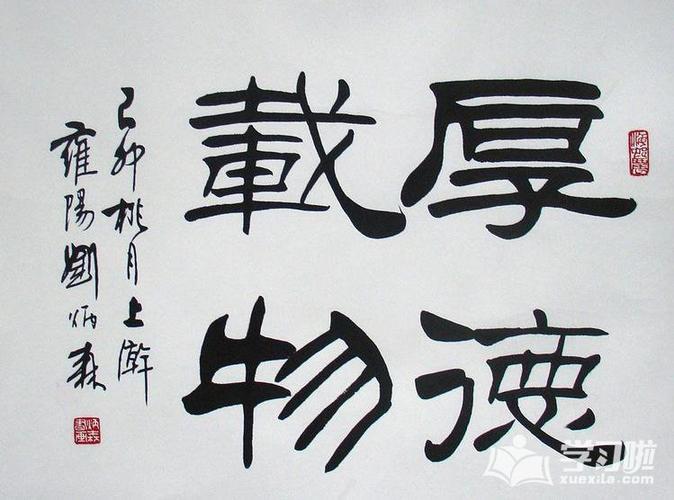 厚德
載物
己卯桃月上澣
雍陽劉炳森
学习啦
xuexila.com